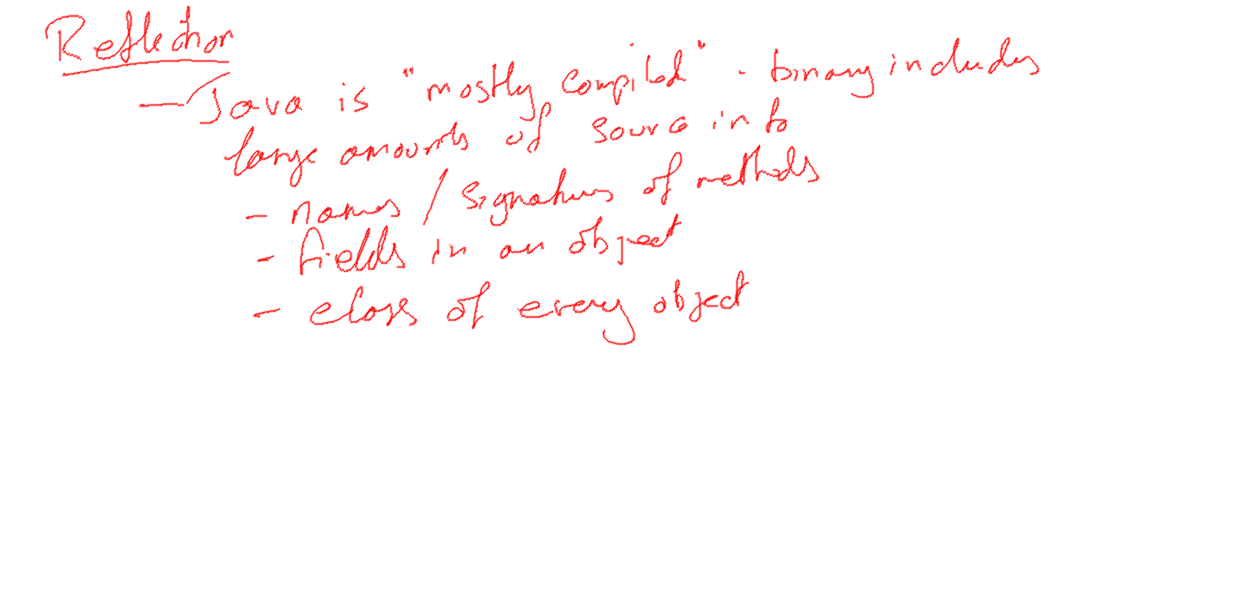 Reflection
— Java is "mostly compiled" - binary includes
large amounts of source info
- names / signatures of methods
- fields in an object
- class of every object